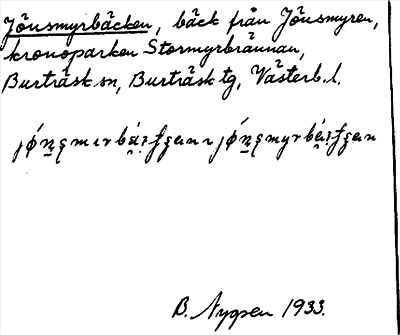 Jönsmyrbäcken, bäck från Jönsmyren,
kronoparken Stormyrbrännan,
Burträsk sn, Burträsk tg, Västerb. l.
B. Nygren 1933.